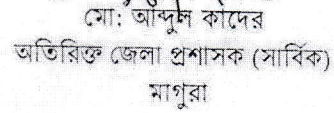 মো: আব্দুল কাদের
অতিরিক্ত জেলা প্রশাসক (সার্বিক)
মাগুরা